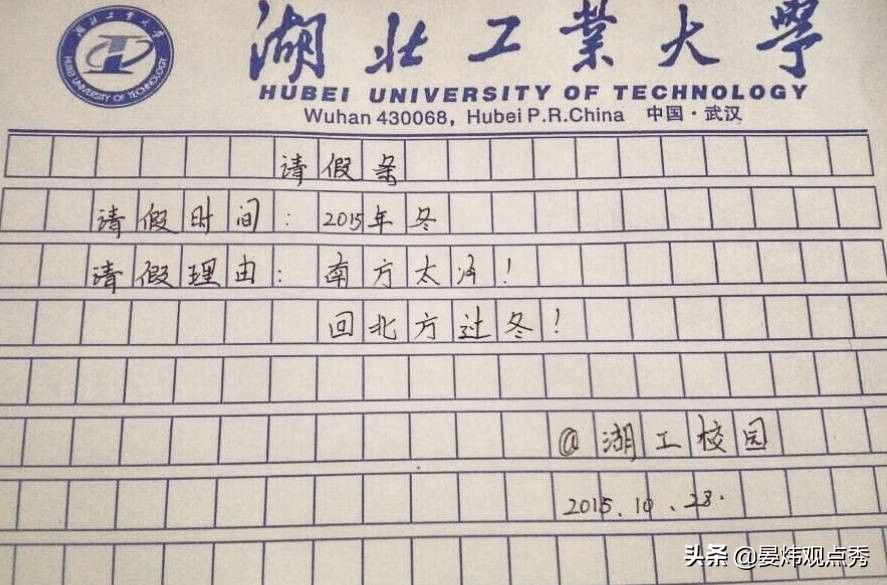 湖北工业大学
HUBEI UNIVERSITY OF TECHNOLOGY
Wuhan 430068, Hubei P.R.China 中国·武汉
湖北工业大学
HUBEI UNIVERSITY OF TECHNOLOGY
请假条
请假时间：2015年冬
请假理由：南方太冷！
回北方过冬！
@湖工校园
2015.10.28.
头条 @晏炜观点秀